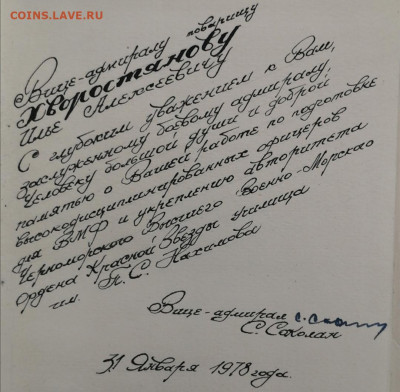 COINS.LAVE.RU
Вице-адмиралу товарищу
Хворостянову
Илье Алексеевичу
С глубоким уважением к Вам,
заслуженному боевому адмиралу,
человеку большой души и доброй
памятью о Вашей работе по подготовке
высокодисциплинированных офицеров
для ВМФ и укреплению авторитета
Черноморского Высшего Военно-Морского
ордена Красной Звезды училища
им. П. С. Нахимова
Вице-адмирал
С. Соколан
31 Января 1978 года.